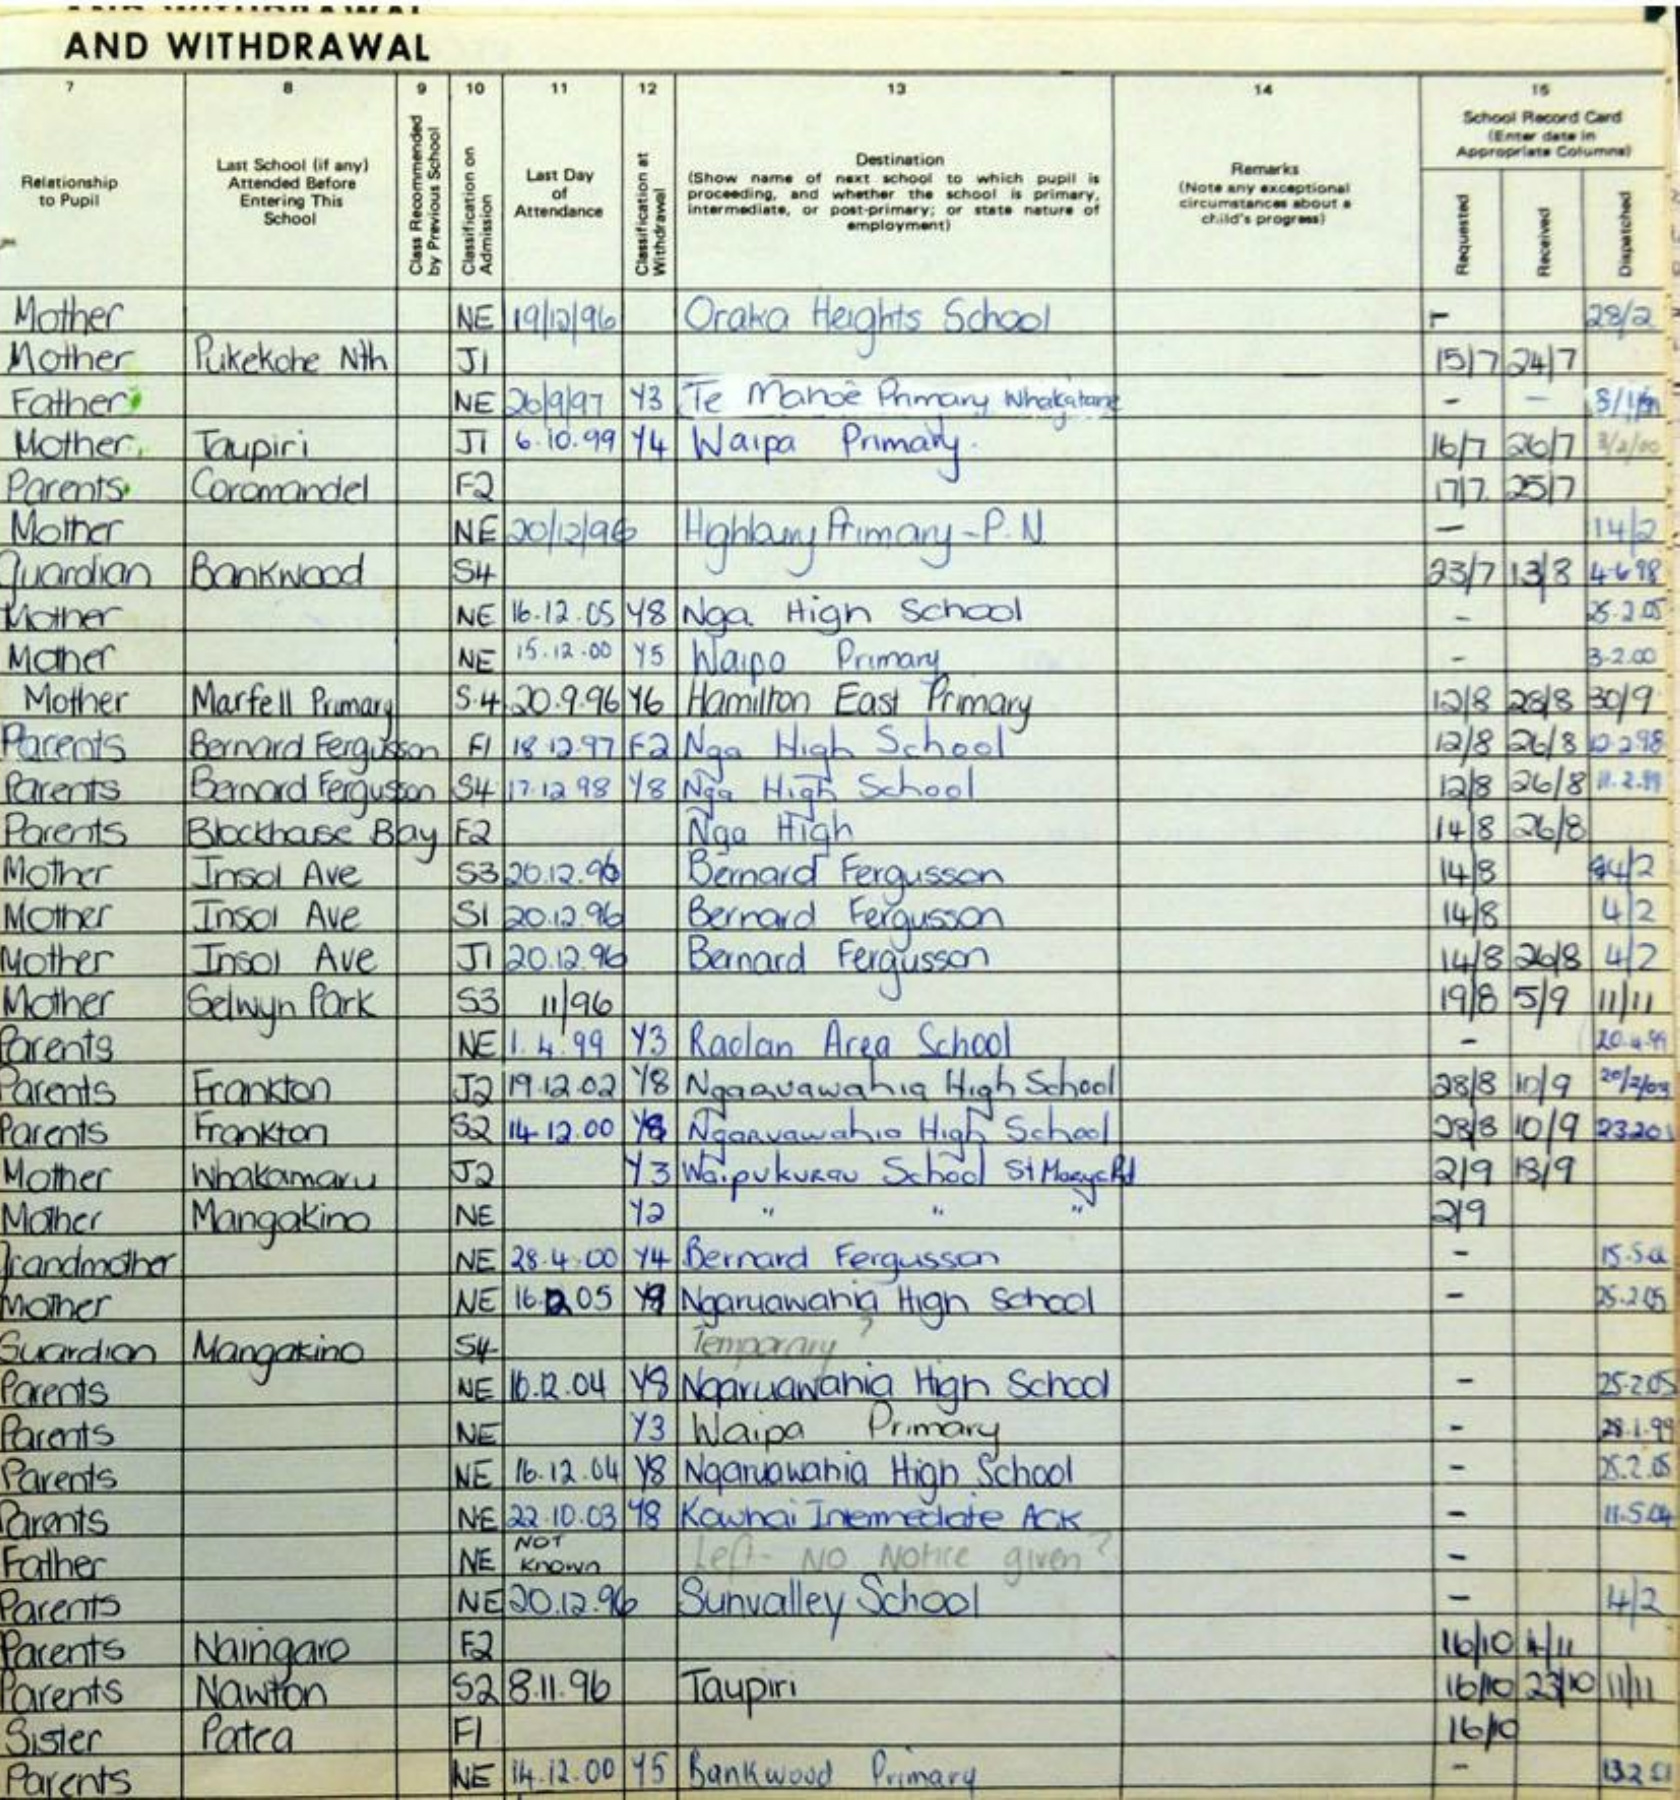 AND WITHDRAWAL
7 8 9 10 11 12 13 14 15
Relationship to Pupil
Last School (if any) Attended Before Entering This School
Class Recommended by Previous School
Classification on Admission
Last Day of Attendance
Classification at Withdrawal
Destination
(Show name of next school to which pupil is proceeding, and whether the school is primary, intermediate, or post-primary; or state nature of employment)
Remarks
(Note any exceptional circumstances about a child's progress)
School Record Card
(Enter date in Appropriate Columns)
Requested Received Dispatched
Mother NE 19/12/96 Oraka Heights School - 28/2
Mother Pukekohe Nth J1 15/7 24/7
Father NE 26/9/97 Y3 Te Mahoe Primary Whakatane - -
Mother Taupiri J1 6.10.99 Y4 Waipa Primary. 16/7 26/7 3/2/00
Parents Coromandel F2 17/7 25/7
Mother NE 20/12/96 Highbury Primary - P.N. - 14/2
Guardian Bankwood S4 23/7 13/8 4.6.98
Mother NE 16.12.05 Y8 Nga High School - 25.2.05
Mother NE 15.12.00 Y5 Waipa Primary - 3.2.00
Mother Marfell Primary S4 20.9.96 Y6 Hamilton East Primary 12/8 28/8 30/9
Parents Bernard Fergusson F1 18.12.97 F2 Nga High School 12/8 26/8 12.2.98
Parents Bernard Fergusson S4 17.12.98 Y8 Nga High School 12/8 26/8 11.2.99
Parents Blockhouse Bay F2 Nga High 14/8 26/8
Mother Insol Ave S3 20.12.96 Bernard Fergusson 14/8 4/2
Mother Insol Ave S1 20.12.96 Bernard Fergusson 14/8 4/2
Mother Insol Ave J1 20.12.96 Bernard Fergusson 14/8 26/8 4/2
Mother Selwyn Park S3 11/96 19/8 5/9 11/11
Parents NE 1.4.99 Y3 Raglan Area School - 20.4.99
Parents Frankton J2 19.12.02 Y8 Ngaruawahia High School 28/8 10/9 20/2/03
Parents Frankton S2 14.12.00 Y8 Ngaruawahia High School 28/8 10/9 23201
Mother Whakamaru J2 Y3 Waipukurau School St Marys Rd 2/9 13/9
Mother Mangakino NE Y2 " " " 2/9
Grandmother NE 28.4.00 Y4 Bernard Fergusson -
Mother NE 16.12.05 Y9 Ngaruawahia High School - 25.2.05
Guardian Mangakino S4 Temporary?
Parents NE 16.12.04 Y8 Ngaruawahia High School - 25.2.05
Parents NE Y3 Waipa Primary - 28.1.99
Parents NE 16.12.04 Y8 Ngaruawahia High School - 25.2.05
Parents NE 22.10.03 Y8 Kowhai Intermediate ACK - 11.5.04
Father NE NOT Known Left - No Notice given? -
Parents NE 20.12.96 Sunvalley School - 4/2
Parents Naingaro F2 16/10 4/11
Parents Nawton S2 8.11.96 Taupiri 16/10 23/10 11/11
Sister Patea F1 16/10
Parents NE 14.12.00 Y5 Bankwood Primary -